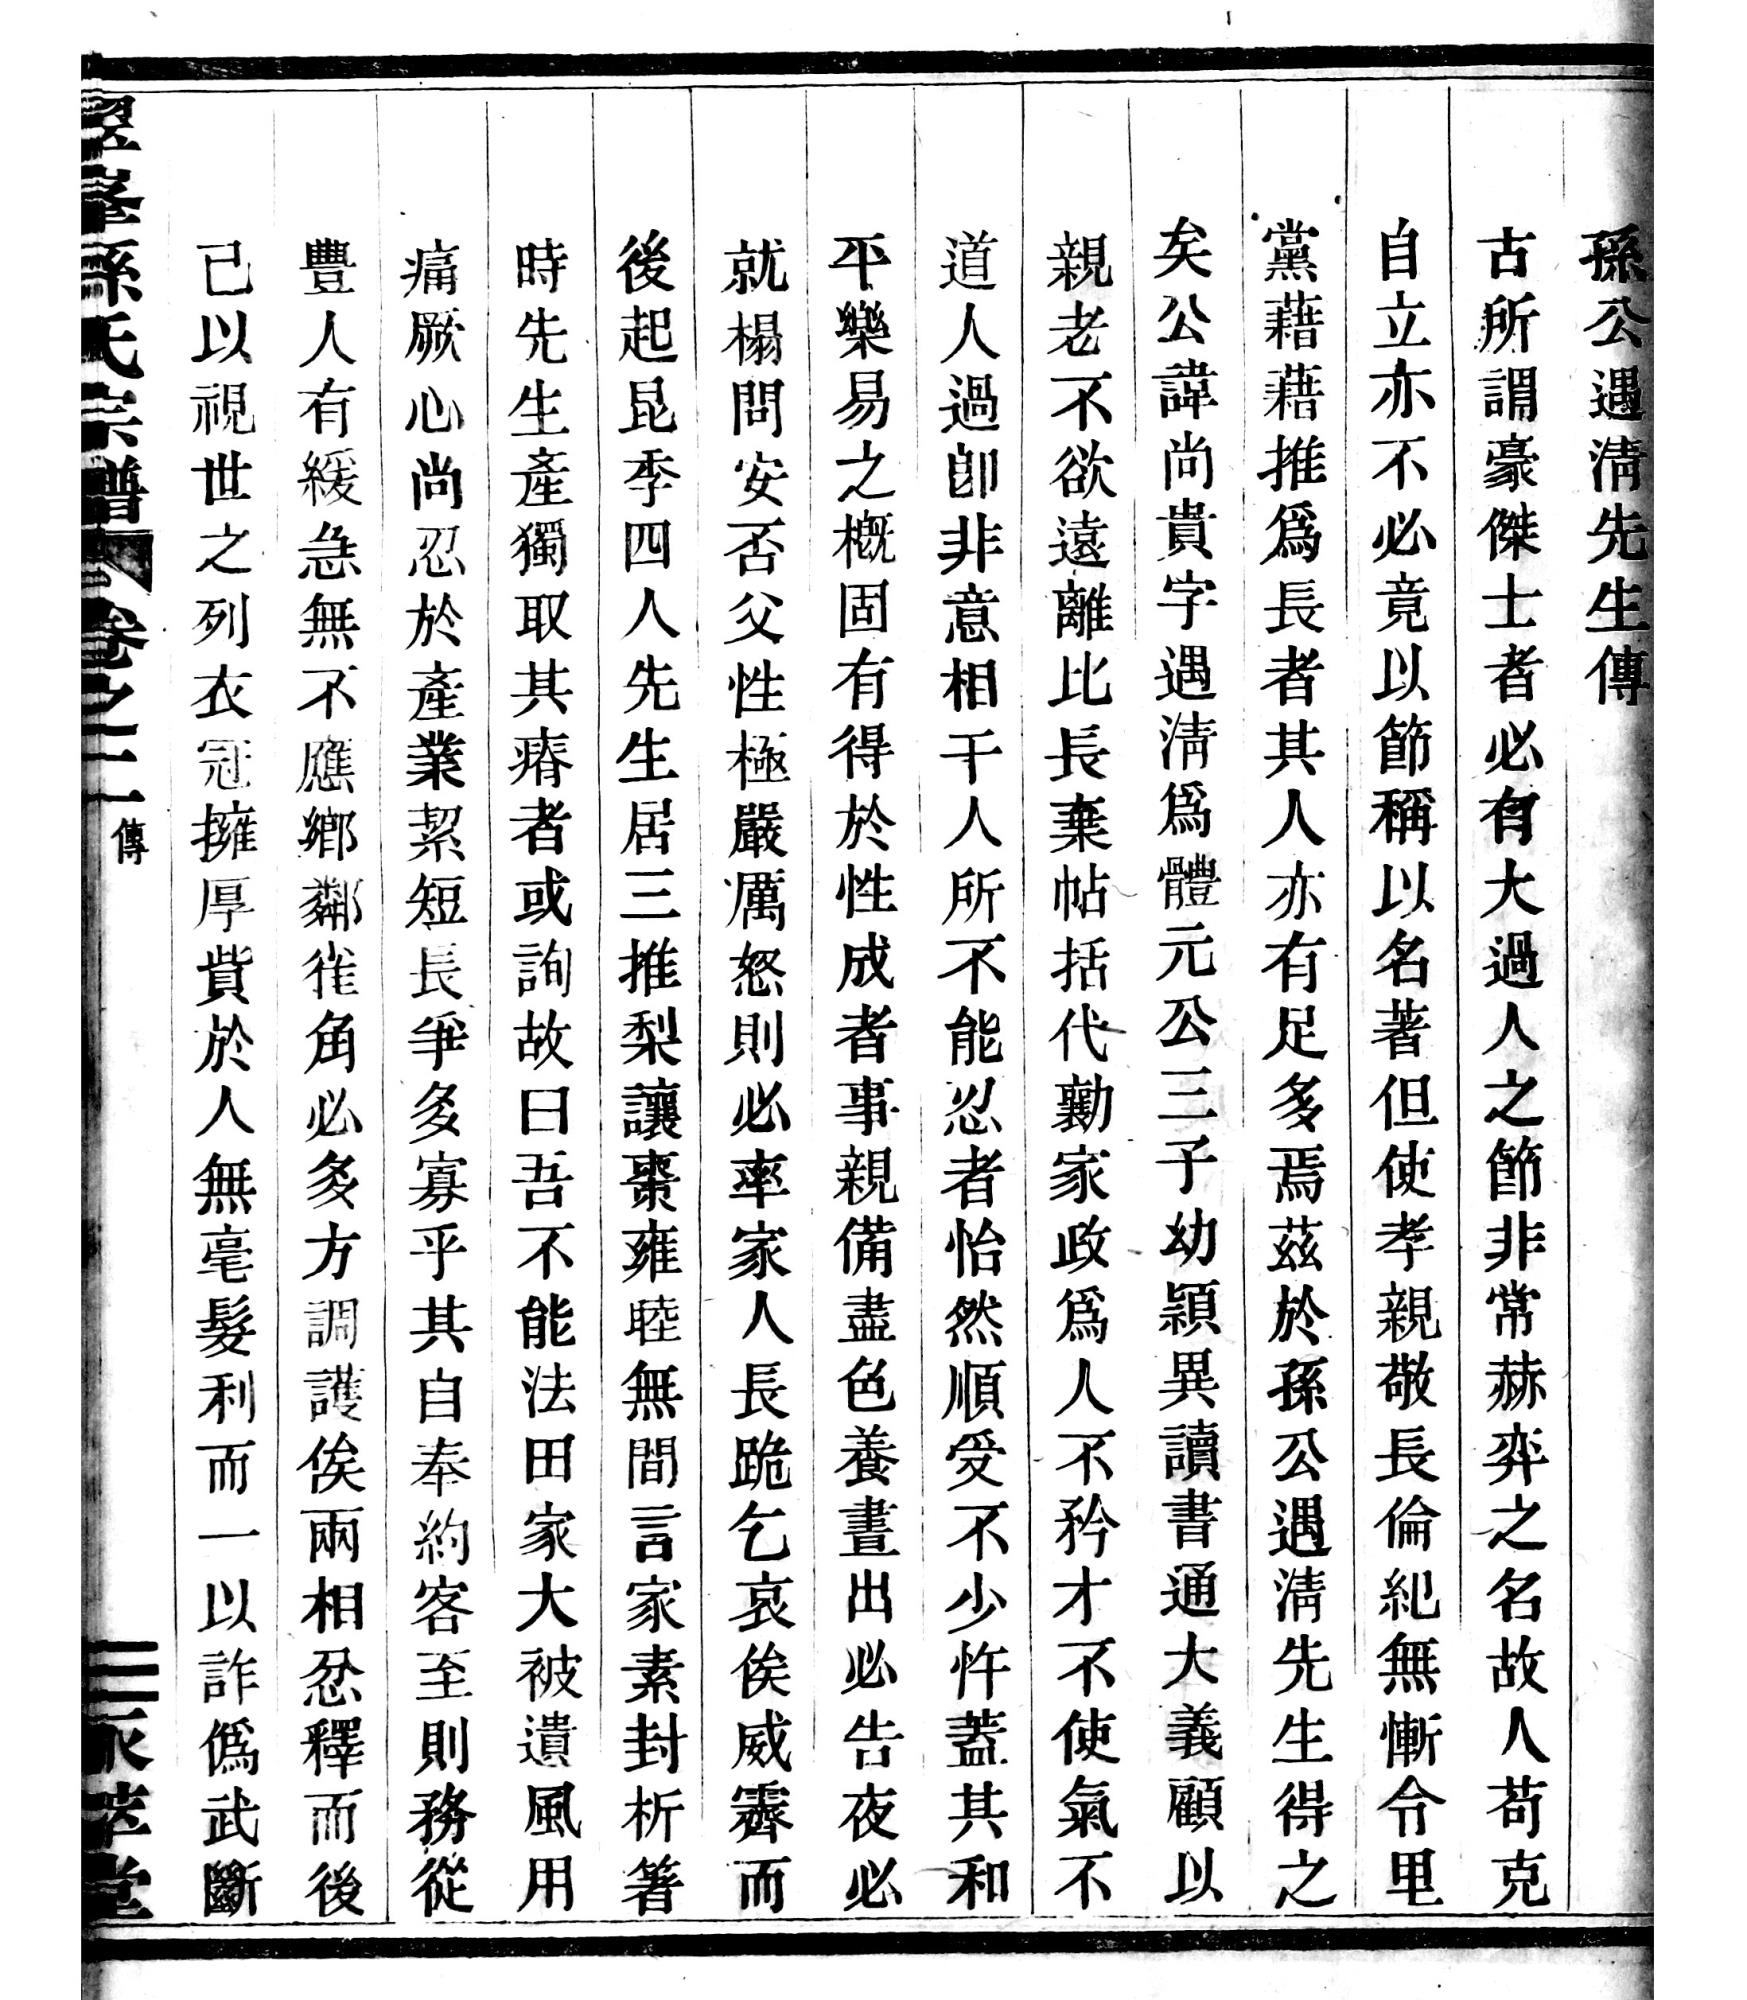 孫公遇淸先生傳
古所謂豪傑士者必有大過人之節非常赫弈之名故人苟克
自立亦不必竟以節稱以名著但使孝親敬長倫紀無慚令里
黨藉藉推爲長者其人亦有足多焉茲於孫公遇淸先生得之
矣公諱尚貴字遇淸爲體元公三子幼穎異讀書通大義顧以
親老不欲遠離比長棄帖括代勷家政爲人不矜才不使氣不
道人過卽非意相干人所不能忍者怡然順受不少忤蓋其和
平樂易之槪固有得於性成者事親備盡色養晝出必告夜必
就榻問安否父性極嚴厲怒則必率家人長跪乞哀俟威霽而
後起昆季四人先生居三推梨讓棗雍睦無間言家素封析箸
時先生產獨取其瘠者或詢故曰吾不能法田家大被遺風用
痛厥心尚忍於產業絜短長爭多寡乎其自奉約客至則務從
豐人有緩急無不應鄉鄰雀角必多方調護俟兩相忿釋而後
已以視世之列衣冠擁厚貲於人無毫髮利而一以詐僞武斷
孫氏宗譜 卷之二 傳
萃堂